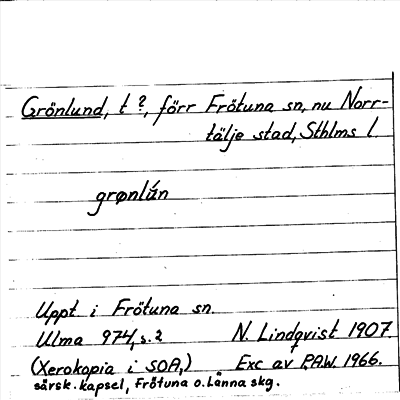 Grönlund, t ?, förr Frötuna sn, nu Norr-
tälje stad, Sthlms l
grønlún
Uppt i Frötuna sn.
Ulma 974, s. 2 N. Lindqvist 1907.
(Xerokopia i SOA,) Exc av P.A.W. 1966.
särsk. kapsel, Frötuna o. Länna skg.